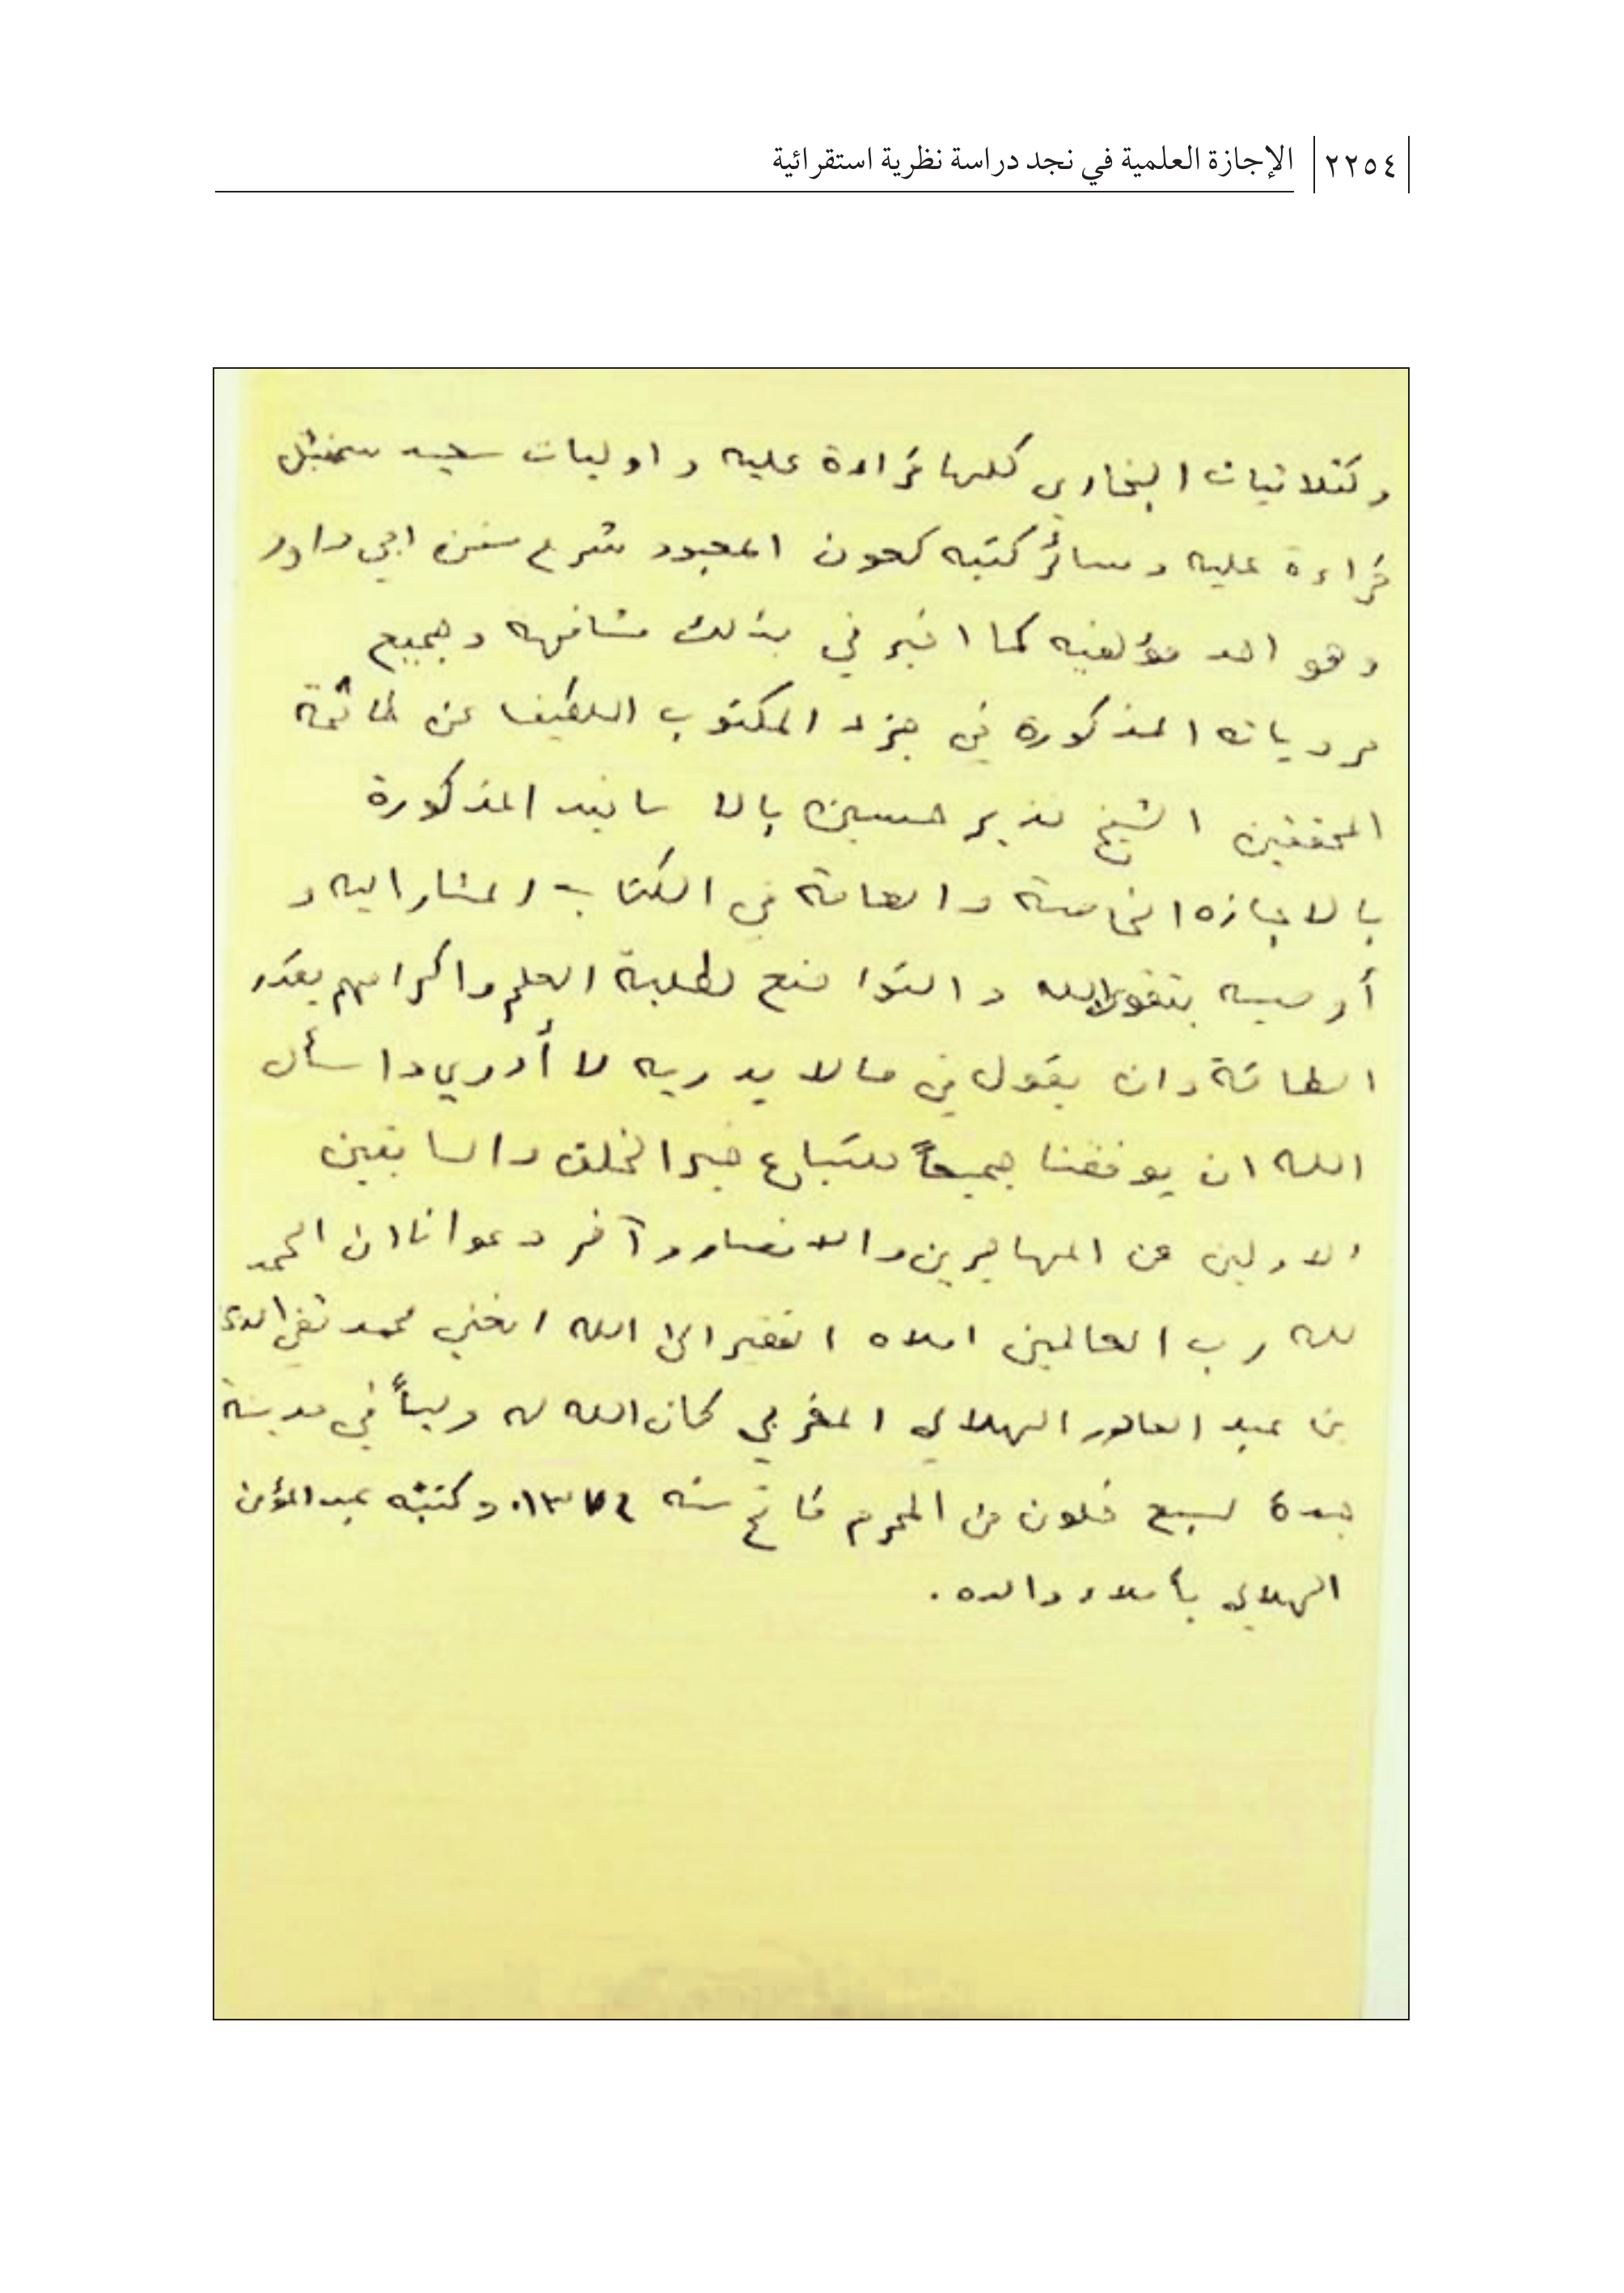 ٢٢٥٤ الإجازة العلمية في نجد دراسة نظرية استقرائية
وكثلاثيات البخاري كلها قراءة عليه واوليات سعيد سنبل
قراءة عليه وسائر كتبه كعون المعبود شرح سنن ابي داود
وهو احد مؤلفيه كما اخبرني بذلك مشافهه وجميع
مروياته المذكورة في جزء المكتوب اللطيف عن خاتمة
المحققين الشيخ نذير حسين بالاسانيد المذكورة
بالاجازه الخاصة والعامة في الكتاب المشار اليه و
أوصيه بتقوى الله والتواضع لطلبة العلم واكرامهم بقدر
الطاقة وان يقول في مالا يدريه لا أدري واسأل
الله ان يوفقنا جميعاً خير الخلق والسابقين
الاولين من المهاجرين والانصار وآخر دعوانا ان الحمد
لله رب العالمين املاه الفقير الى الله الغني محمد تقي الدين
بن عبد القادر الهلالي المغربي كان الله له ولياً في مدينة
جدة لسبع خلون من المحرم فاتح سنه ١٣٧٤. وكتبه عبد المؤمن
الهلالي بأملاء والده.